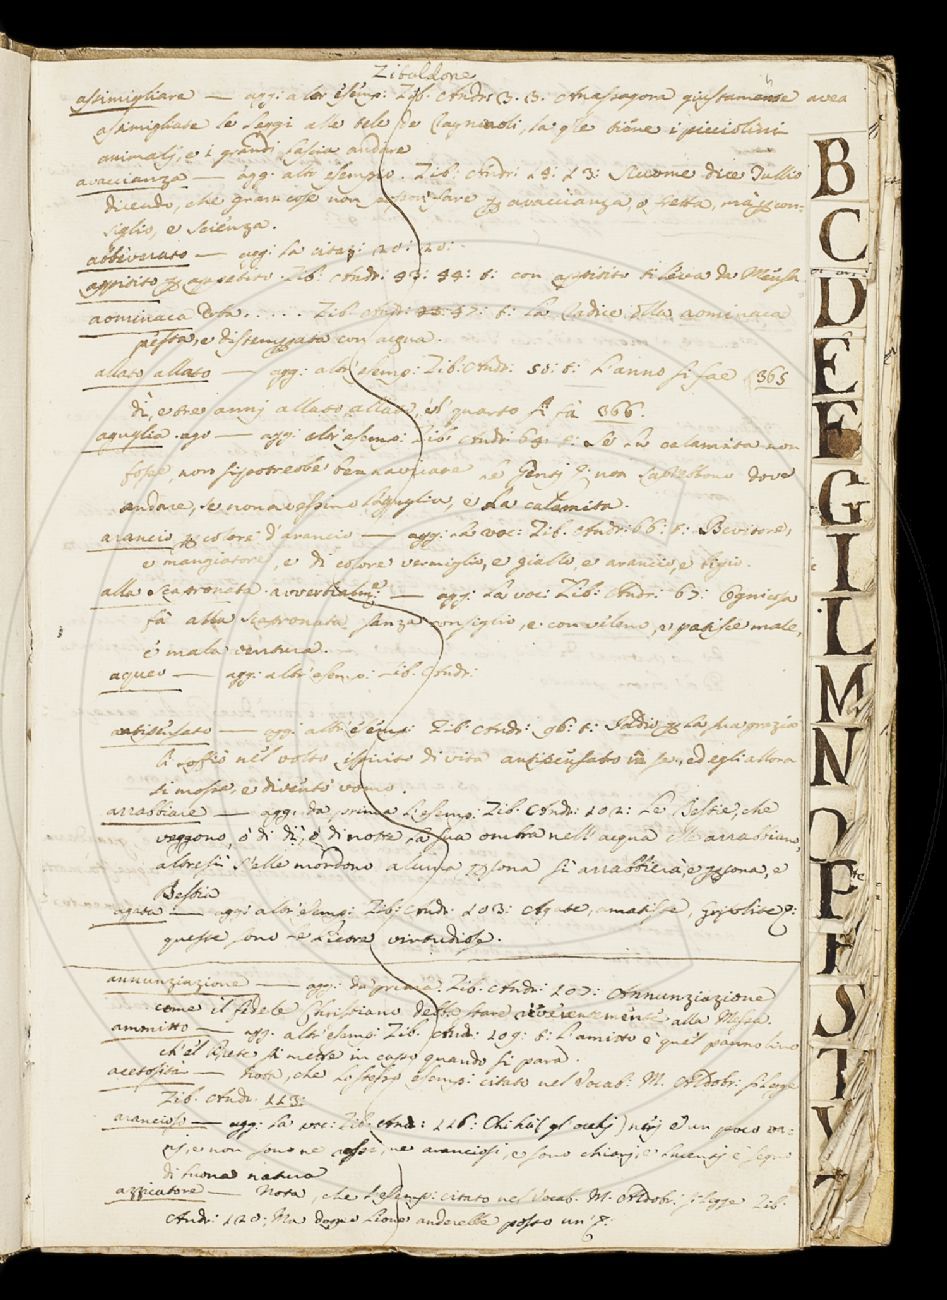 Zibaldone
assimigliare — agg: altr' esemp: Zib. Andr: 3. 3: Anassagora giustamente avea
assimigliate le leggi alle tele de' ragnuoli, la q'le tiene i picciolini
animalj, e i grandi lascia andare
avaccianza — agg: altr esempio. Zib: Andr: 18: 23: Siccome dice Tullio
dicendo, che gran cose non si posson fare avaccianza, o fretta, mà con-
siglio, e scienza.
abbeverato — agg: la citaz: 20: 20:
appitito appetito Zib. Andr: 43: 44: t: con appitito ti leva da Mensa
aominaca Erba . . . . . Zib. Andr: 47: t: La Radice della aominaca
pesta, e distemperata con acqua.
allato allato — agg: altr esemp: Zib: Andr: 50: t: L'anno si fae 365
dì, e tre annj allato allato, e 'l quarto si fà 366.
aguglia. ago — agg: altr' esemp: Zib Andr: 64: t: Se la calamita non
fosse, non si potrebbe ben navicare le Genti non saprebbono dove
andare, se non avessino l'aguglia, e la calamita.
arancio colore d'arancio — agg: la voc: Zib. Andr: 66: t: Bevitore,
e mangiatore, e di colore vermiglio, e giallo, e arancio, e bigio.
alla scapronata. avverbialm:e — agg: la voc: Zib. Andr: 67: Ogni cosa
fà alla scapronata senza consiglio, e con veleno, patisce male,
è mala ventura.
aqueo — agg: altr' esemp: Zib. Andr:
antiscusato — agg: altr' esemp: Zib Andr: 96: t: Iddio la sua grazia
li soffiò nel volto ispirito di vita antiscusato in se, ed egli allora
si mosse, e diventò uomo.
arrabbiare — agg: da prima l'esemp: Zib. Andr: 102: Le Bestie, che
veggono, ò di dì, ò di notte la sua ombra nell'acqua elle arrabbiano,
altresì s'elle mordono alcuna sona si arrabbierà e sona, e
Bestia
agata — agg: altr' esemp: Zib: Andr: 103: Agate, amatiste, Grisolite
queste sono le Pietre virtudiose.
annunziazione — agg: da prima. Zib. Andr: 107: Annunziazione
come il fedele Christiano debba stare reverentemente alla Messa.
ammitto — agg: altr' esemp: Zib. Andr: 109: t: L'amitto è quel pannolino
ch'el Prete si mette in capo quando si para.
acetosità — Nota, che lo stesso esemp: citato nel Vocab: M. Aldobr: si legge
Zib. Andr. 113:
arancioso — agg: la voc: Zib. Andr: 116: Chi hà (gl'occhj) è un poco va-
rj, e non sono ne rossi, ne aranciosi, e sono chiarj, e lucentj è segno
di buona natura
appiccatore — Nota, che l'esemp: citato nel Vocab. M. Aldobr: si legge Zib.
Andr: 120: Ma doppo Lione anderebbe posto un'
B
C
D
E
F
G
I
L
M
N
O
P
R
S
T
V
Z